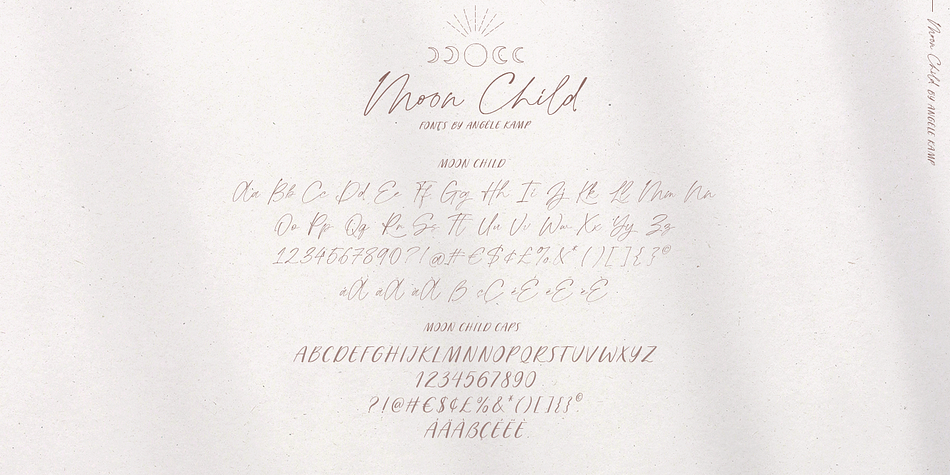 Moon Child
FONTS BY ANGELE KAMP
MOON CHILD
Aa Bb Cc Dd Ee Ff Gg Hh Ii Jj Kk Ll Mm Nn
Oo Pp Qq Rr Ss Tt Uu Vv Ww Xx Yy Zz
1234567890?!@#€$¢£%&*()[]{}©
MOON CHILD CAPS
ABCDEFGHIJKLMNNOPQRSTUVWXYZ
1234567890
?!@#€$¢£%&*()[]{}©
Moon Child BY ANGELE KAMP